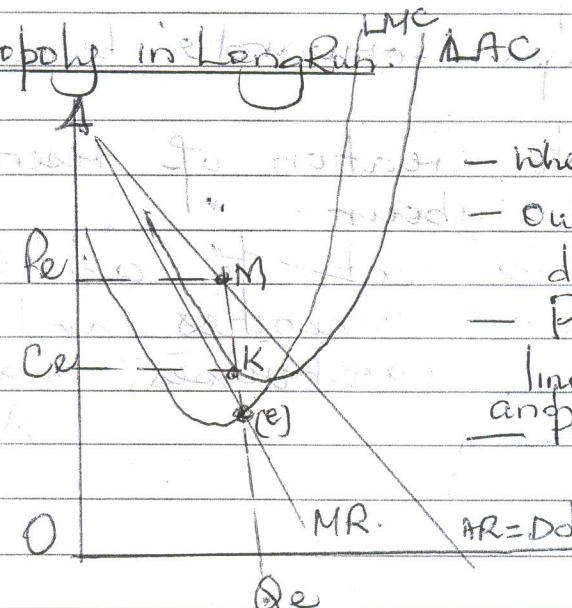 opoly in Long Run.
LMC
LAC
A
— whe
— Ou
Pe
M
d
— P
Ce
K
line
ang
(e)
—
O
MR.
AR = Do
Qe